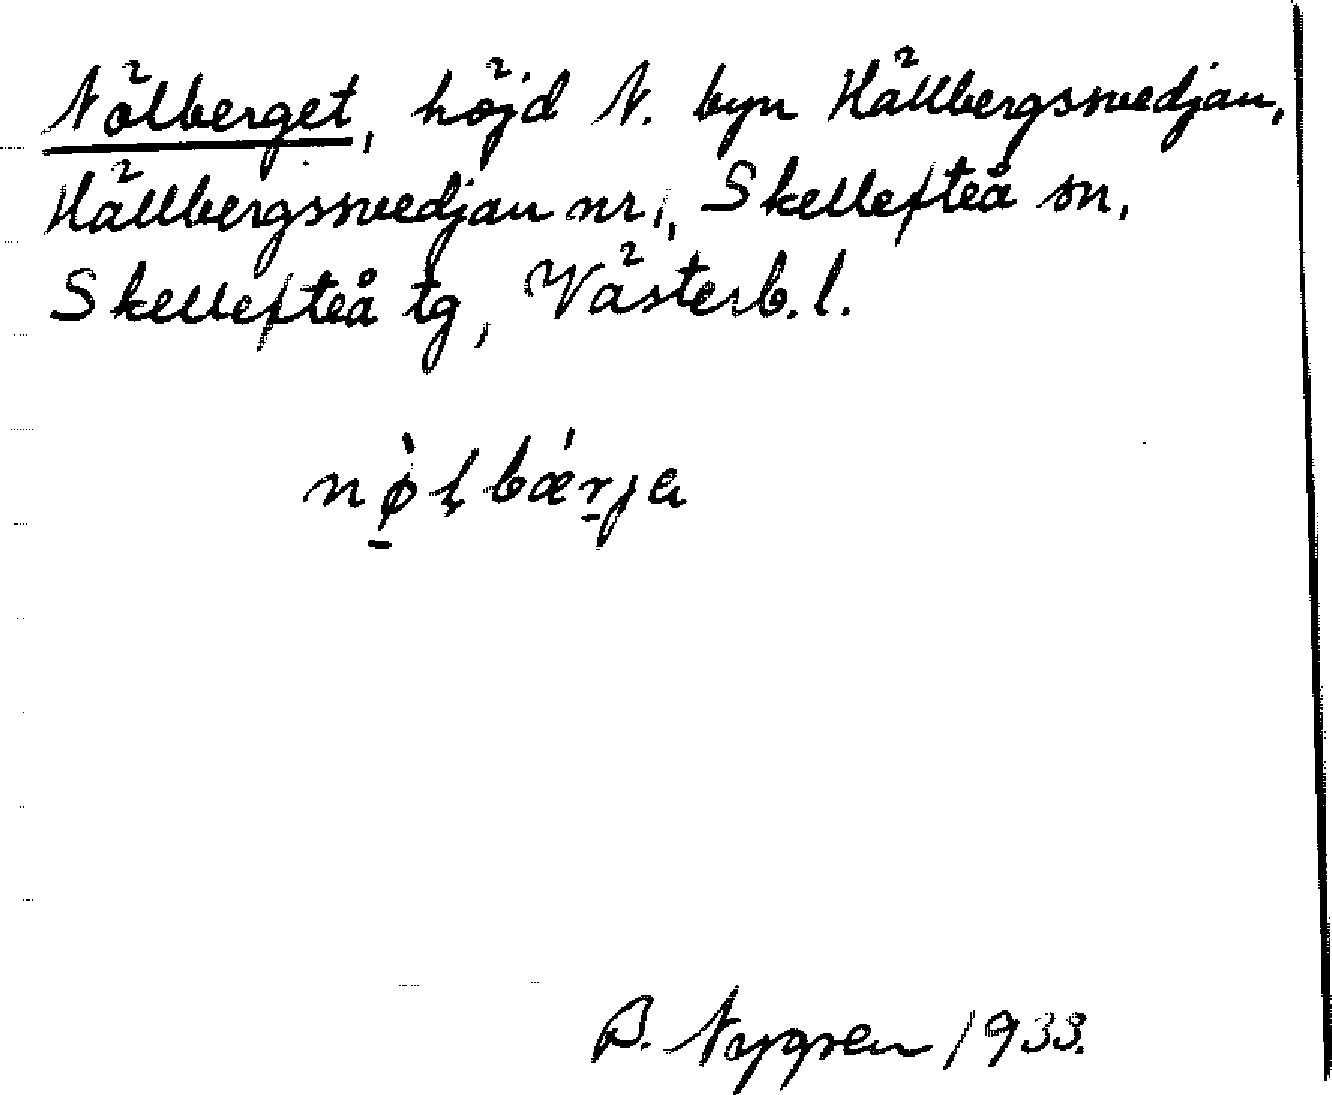 Nölberget, höjd N. byn Hällbergssvedjan,
Hällbergssvedjan nr 1, Skellefteå sn,
Skellefteå tg, Västerb. l.
nø̀ḷbǽrja
B. Nygren 1933.